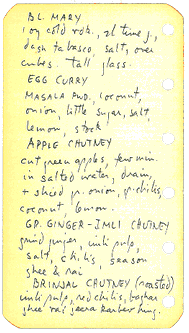 BL. MARY
1 oz cold vdk.,
dash tabasco, salt, over
cubes. tall glass.
EGG CURRY
MASALA PWD., coconut,
onion, little sugar, salt,
lemon, stock
APPLE CHUTNEY
cut green apples, few min.
in salted water, drain,
+ sliced gr. onion, gr. chilis,
coconut, lemon.
GR. GINGER-IMLI CHUTNEY
grind ginger, imli pulp,
salt, chilis, season
ghee & rai
BRINJAL CHUTNEY (roasted)
imli pulp, red chilis,
ghee rai jeera hing.